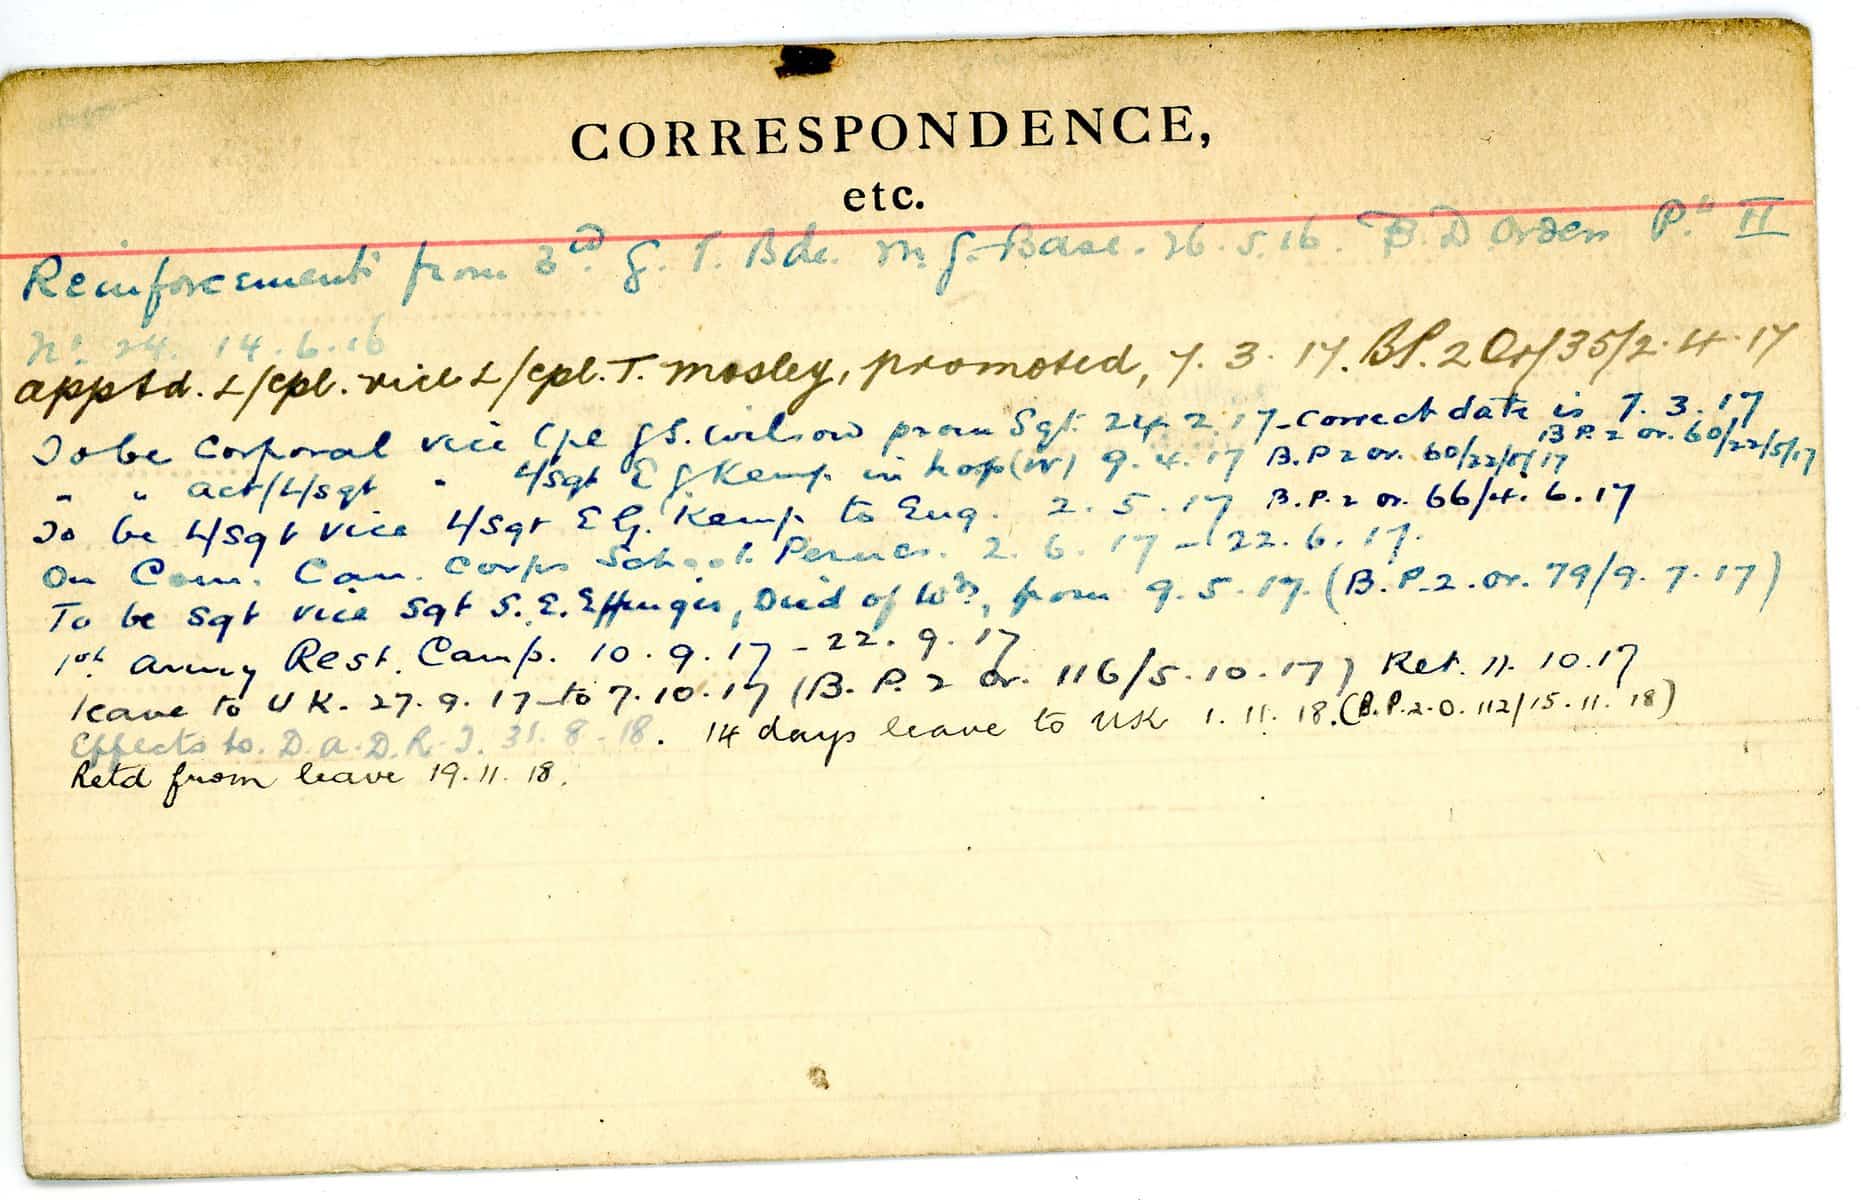 CORRESPONDENCE,
etc.
Reinforcement from 3rd. G. T. Bde. M. G. Base. 26.5.16. B.D Orders P." II
No. 24. 14.6.16
apptd. L/cpl. vice L/cpl. T. Mosley, promoted, 7.3.17. BP.2 Or/35/2.4.17
To be Corporal vice Cpl J.S. Wilson prom Sgt. 24.2.17 - correct date is 7.3.17
B P.2 or. 60/22/5/17
" " act/L/sgt " L/sgt E G Kemp in hosp (W) 9.4.17 B.P 2 or. 60/22/5/17
To be L/Sgt vice L/Sgt E G. Kemp to Eng. 2.5.17 B.P.2 or. 66/4.6.17
On Com. Can. Corps School. Pernes. 2.6.17 - 22.6.17.
To be Sgt vice Sgt S. E. Effinger, Died of Wds, from 9.5.17. (B.P.2.or. 79/9.7.17)
1st. Army Rest. Camp. 10.9.17 - 22.9.17
leave to U K. 27.9.17 to 7.10.17 (B. P. 2 or. 116/5.10.17) Ret. 11.10.17
Effects to. D.A.D.R.T. 31.8.18. 14 days leave to UK 1.11.18. (B.P.2.O. 112/15.11.18)
Retd from leave 19.11.18.